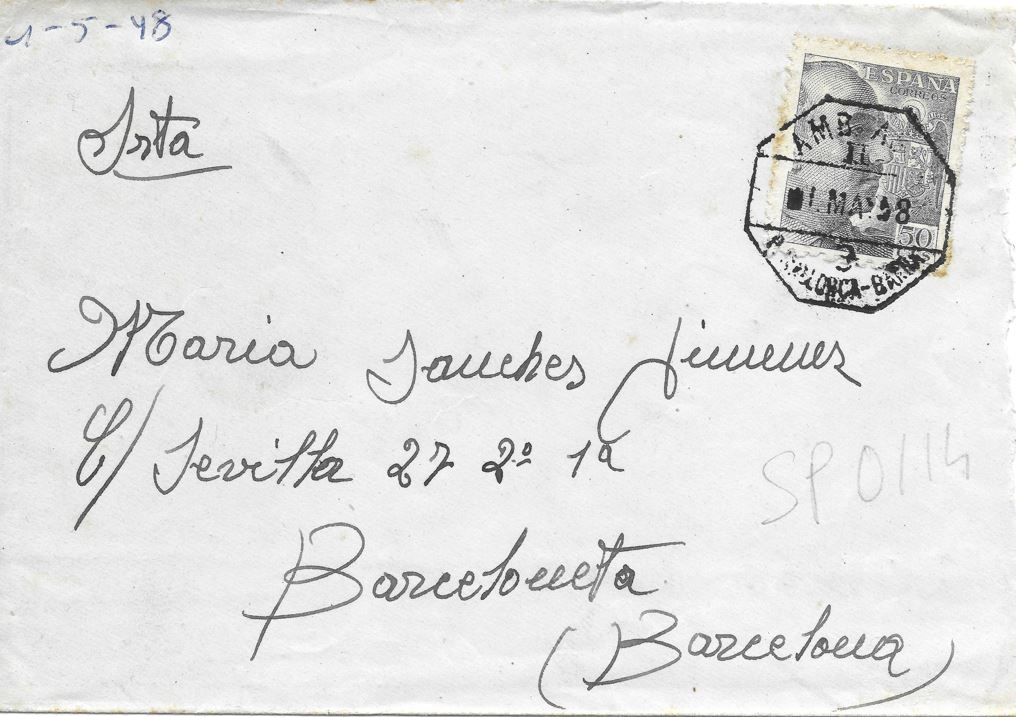 1-5-48
Srta
ESPAÑA
CORREOS
AMB.
II
1.MAY 48
50
3
P.MALLORCA-BARNA
Maria Sanches Jimenez
C/ Sevilla 27 2º 1ª
SP 0/14
Barceloneta
(Barcelona)